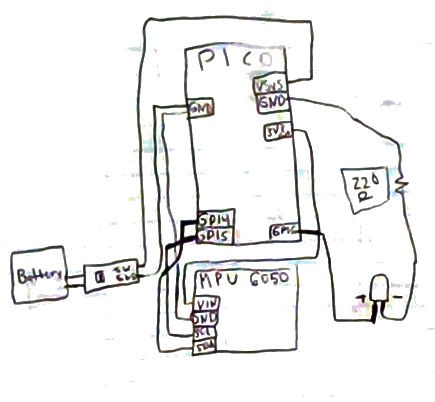 PICO
VSYS
GND
GND
3V3
220
Ω
GP14
GP15
GP16
Battery
MPU 6050
VIN
GND
SCL
SDA
+
-